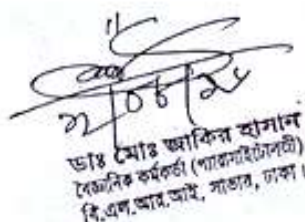 ডাঃ মোঃ জাকির হাসান
বৈজ্ঞানিক কর্মকর্তা (প্যারাসাইটোলজী)
বি.এল.আর.আই, সাভার, ঢাকা।